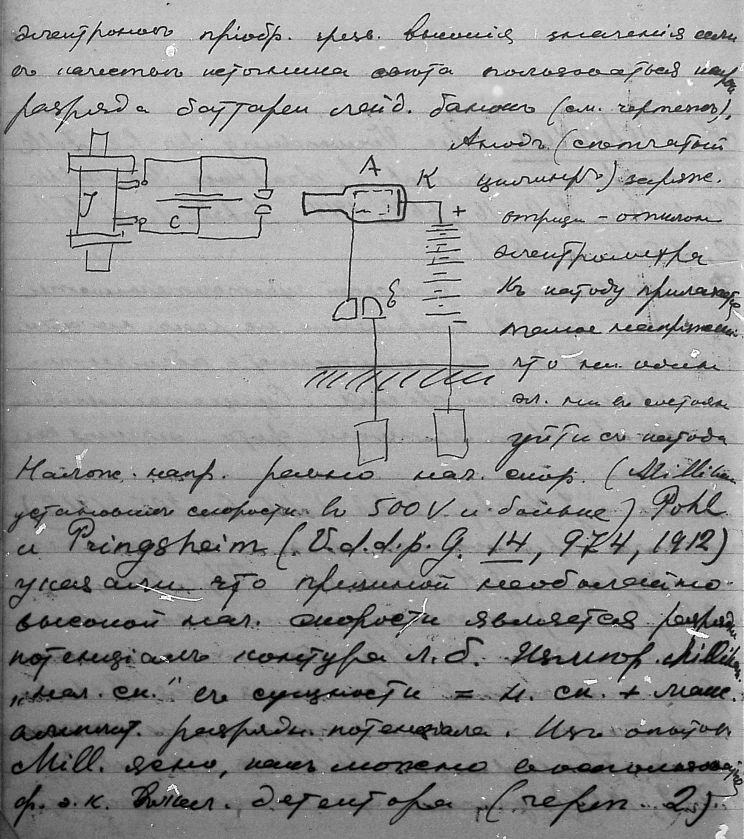 электроновъ прiобр. чрезв. высокiя значенiя если
въ качествѣ источника свѣта пользоваться искрой
разряда баттареи лейд. банокъ (см. чертежъ).
Анодъ (сѣтчатый
цилиндръ) заряж.
A
K
J
C
+
отриц - отклон
электрометра
Къ катоду прилаг
ε
такое напряжен
−
что ни одинъ
эл. не въ состоян
уйти съ катода
Налож. напр. равно нач. скор. (Millikan
установилъ скорости въ 500 V и больше) Pohl
и Pringsheim (V. d. d. p. G. 14, 974, 1912)
указали что причиной необычайно
высокой нач. скорости является разрядн
потенцiалъ контура л. б. Измѣр. Millikan
„нач. ск." въ сущности = н. ск. + макс.
амплит. разрядн. потенцiала. Изъ опытовъ
Mill. ясно, какъ можно воспользов
ф. э. к. детектора (черт. 2).